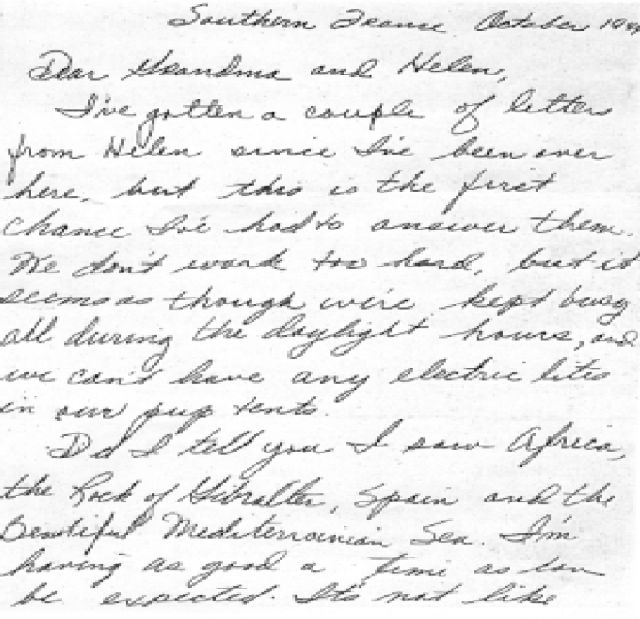 Southern France October 194
Dear Grandma and Helen,
I've gotten a couple of letters
from Helen since I've been over
here, but this is the first
chance I've had to answer them.
We don't work too hard, but it
seems as though we're kept busy
all during the daylight hours, and
we can't have any electric lites
in our pup tents.
Did I tell you I saw Africa,
the Rock of Gibralter, Spain and the
beautiful Mediterrainian Sea. I'm
having as good a time as can
be expected. Its not like